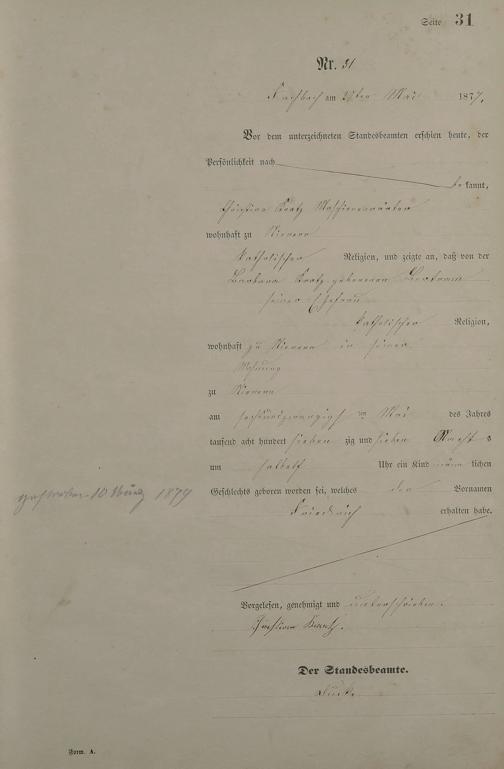 Seite 31
Nr. 31
Fachbach am ten Mai 1877.
Vor dem unterzeichneten Standesbeamten erschien heute, der
Persönlichkeit nach
be kannt,
Christian Kratz Maschinenwärter
wohnhaft zu Nievern
katholischer Religion, und zeigte an, daß von der
Barbara Kratz geborenen Bertram
seiner Ehefrau
katholischer Religion,
wohnhaft zu Nievern in seiner
Wohnung
zu Nievern
am sechsundzwanzigst en Mai des Jahres
tausend acht hundert sieben zig und sieben Nachts
um halbelf Uhr ein Kind männ lichen
Geschlechts geboren worden sei, welches den Vornamen
gestorben 10 März 1879
Friedrich erhalten habe.
Vorgelesen, genehmigt und unterschrieben.
Christian Kratz.
Der Standesbeamte.
Form. A.